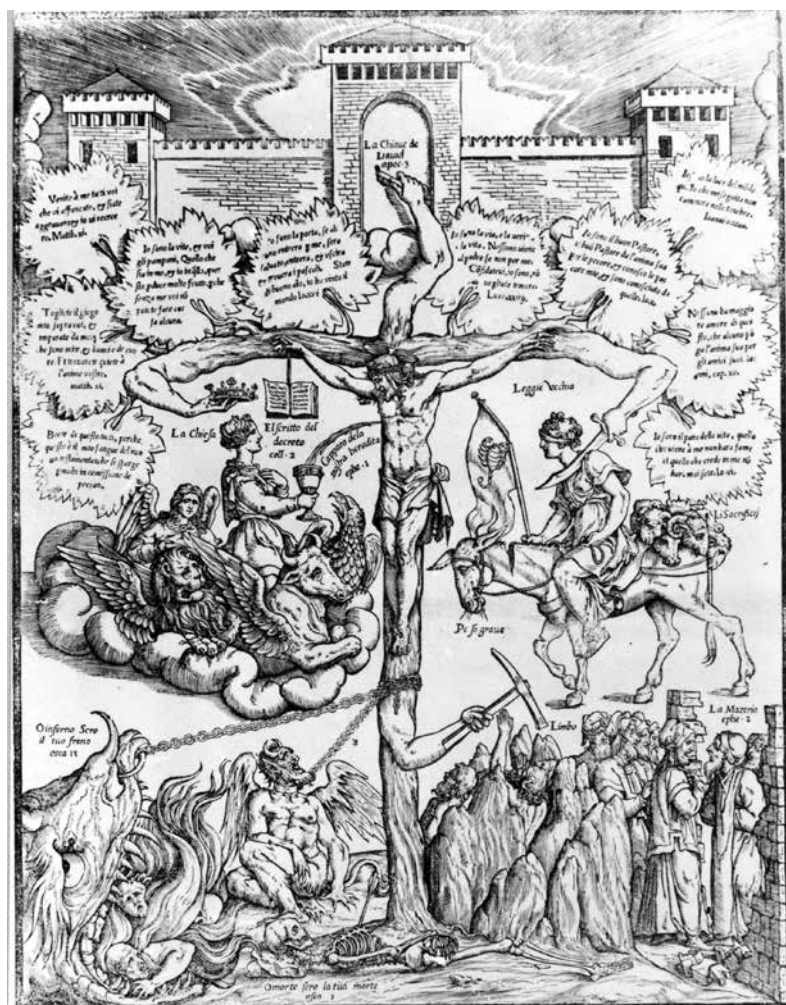 La Chiaue de
Dauid
apoc. 3
Venite à me tutti voi
che vi affaticate, & siate
aggrauati, &
ro. Matth. xi.
Io sono la vite, & voi
gli pampani, Quello che
sta in me, & io in esso, que
sto p̄duce molto frutto, p̄che
senza me voi nō
potete fare cosa
alcuna.
Io sono la porta, se al
uno entrera p me, sera
saluato, entrera, & vscira
& trouera i pascoli. State
di buono aīo, io ho vinto il
mondo
Io sono la via, e la verità
e la vita. Nessuno viene
al padre se non per me.
io sono, nō
vogliate temere.
Io sono il buon Pastore,
il buō Pastore da l'anima sua
per le pecore, & conosco le pe
core mie, & sono conosciuto da
quelle.
Io sono la luce del mōdo
que me seguita non
camina nelle tenebre.
Togliete il giogo
mio sopra voi, &
imparate da me,
che sono mite, & humile de cuo
re. Et trouarete quiete à
l'anime vostre.
matth. xi.
Nessuno ha maggio
re amore di que
sto, che alcuno pō
ga l'anima sua per
gli amici suoi.
cap. xv.
Beuete di questo tutti, perche
questo è il mio sangue del nuo
uo testamento che si sparge
p molti in remissione de
peccati.
Io sono il pane della vita, quello
che viene à me non hara fame
et quello che crede in me nō
hara mai sete. Io. vi.
La Chiesa
El scritto del
decreto
coll. 2
Caparra dela
nostra heredita
ephe. 1
Leggie Vecchia
Li Sacrificij
Pe si graue
O inferno Sero
il tuo freno
osea 13
Limbo
La Maceria
ephe. 2
O morte sero la tua morte